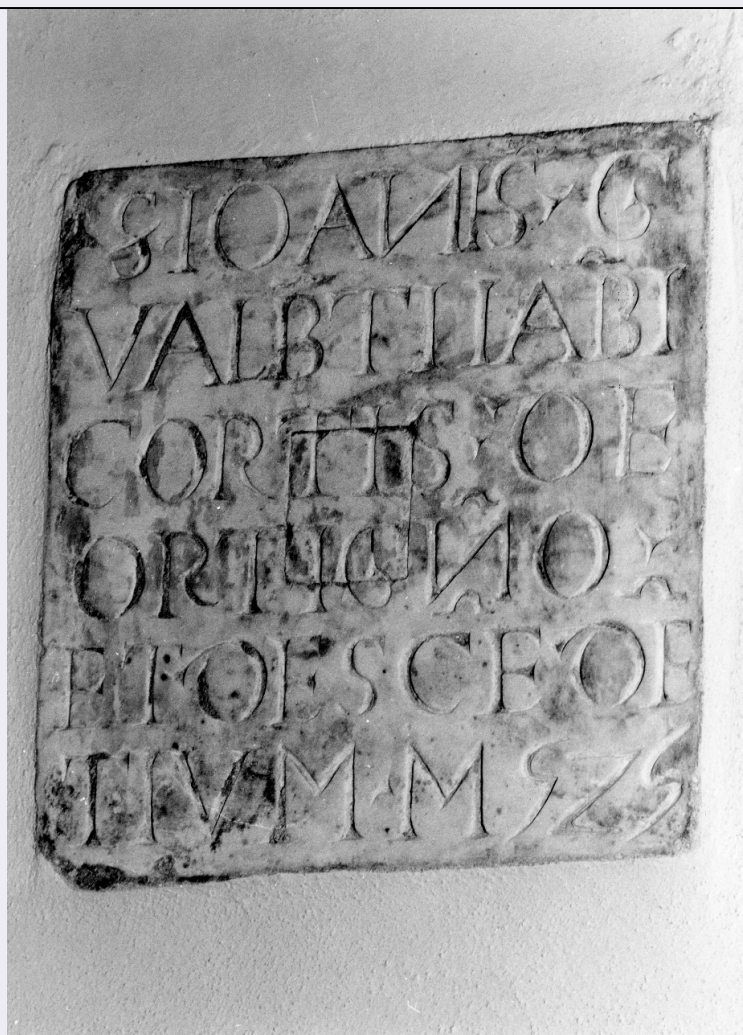 S IOANIS · G
VALBTII AB̄I
CORTIS · O E
ORTIGÑO ·
ET·OES CE·OE
TIVM · M 525